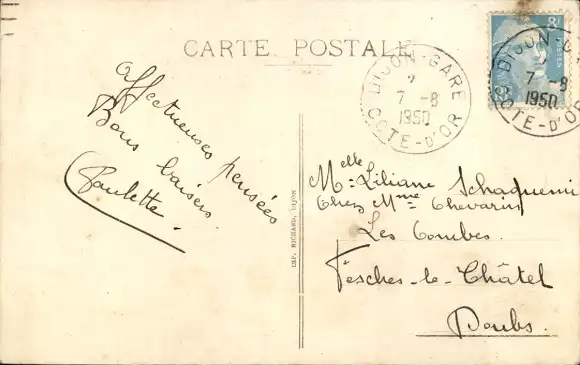 CARTE POSTALE
DIJON-GARE
7 -8
1950
COTE-D'OR
8F
POSTES
DIJON-GA
7 -8
1950
COTE-D'OR
Affectueuses pensées
Bons baisers
Paulette.
IMP. RICHARD, DIJON
Melle Liliane Schaquemi
Chez Mme Chevarin
Les Combes.
Fesches-le-Châtel
Doubs.